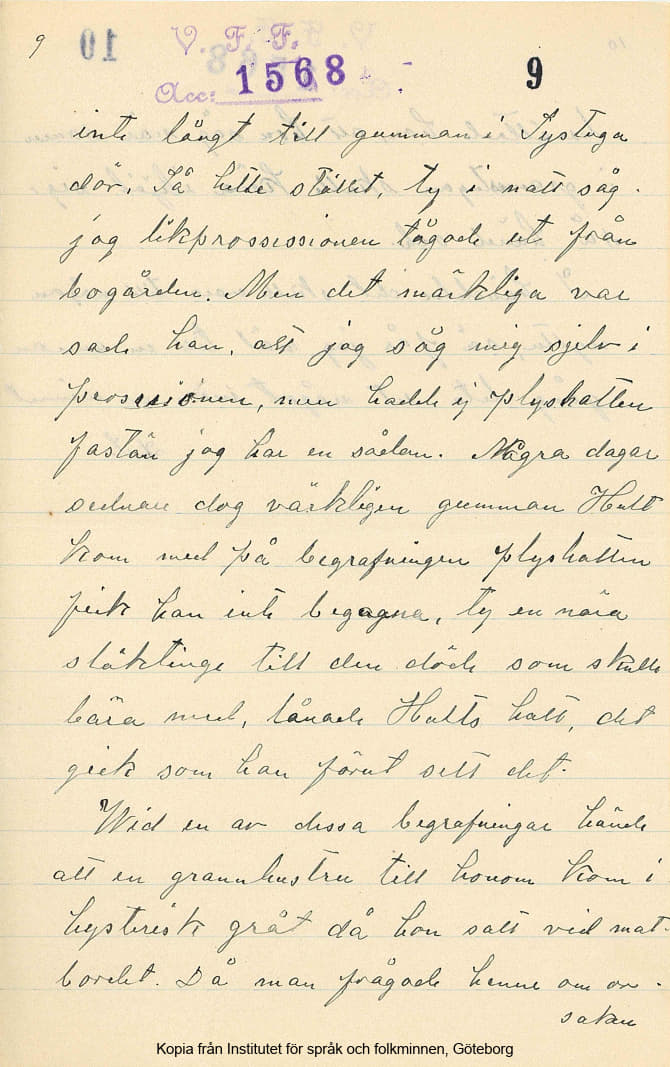 9
10
V. F. F.
Acc: 1568
9
inte långt till gumman i Systuga
dör. Så hette stället, ty i natt såg
jag likprossessionen tågade ut från
bogården. Men det märkliga var
sade han, att jag såg mig sjelv i
prosessionen, men hadde ej plyshatten
fastän jag har en sådan. Några dagar
sednan dog värkligen gumman Hult
kom med på begrafningen plyshatten
feck han inte begagna, ty en nära
släktinge till den döde som skulle
bära med, lånade Hults hatt, det
geck som han förut sett det.
Wid en av dessa begrafningar hände
att en grannhustru till honom kom i
hysterisk gråt då hon satt vid mat-
bordet. Då man frågade henne om or-
saken
Kopia från Institutet för språk och folkminnen, Göteborg